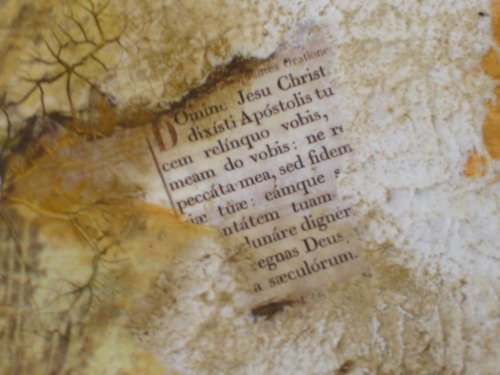 Orationes
Domine Jesu Christ
dixísti Apóstolis tu
cem relínquo vobis,
meam do vobis: ne re
peccáta mea, sed fidem
iæ tuæ: eámque s
ntátem tuam
lunáre dignér
egnas Deus
a sæculórum.